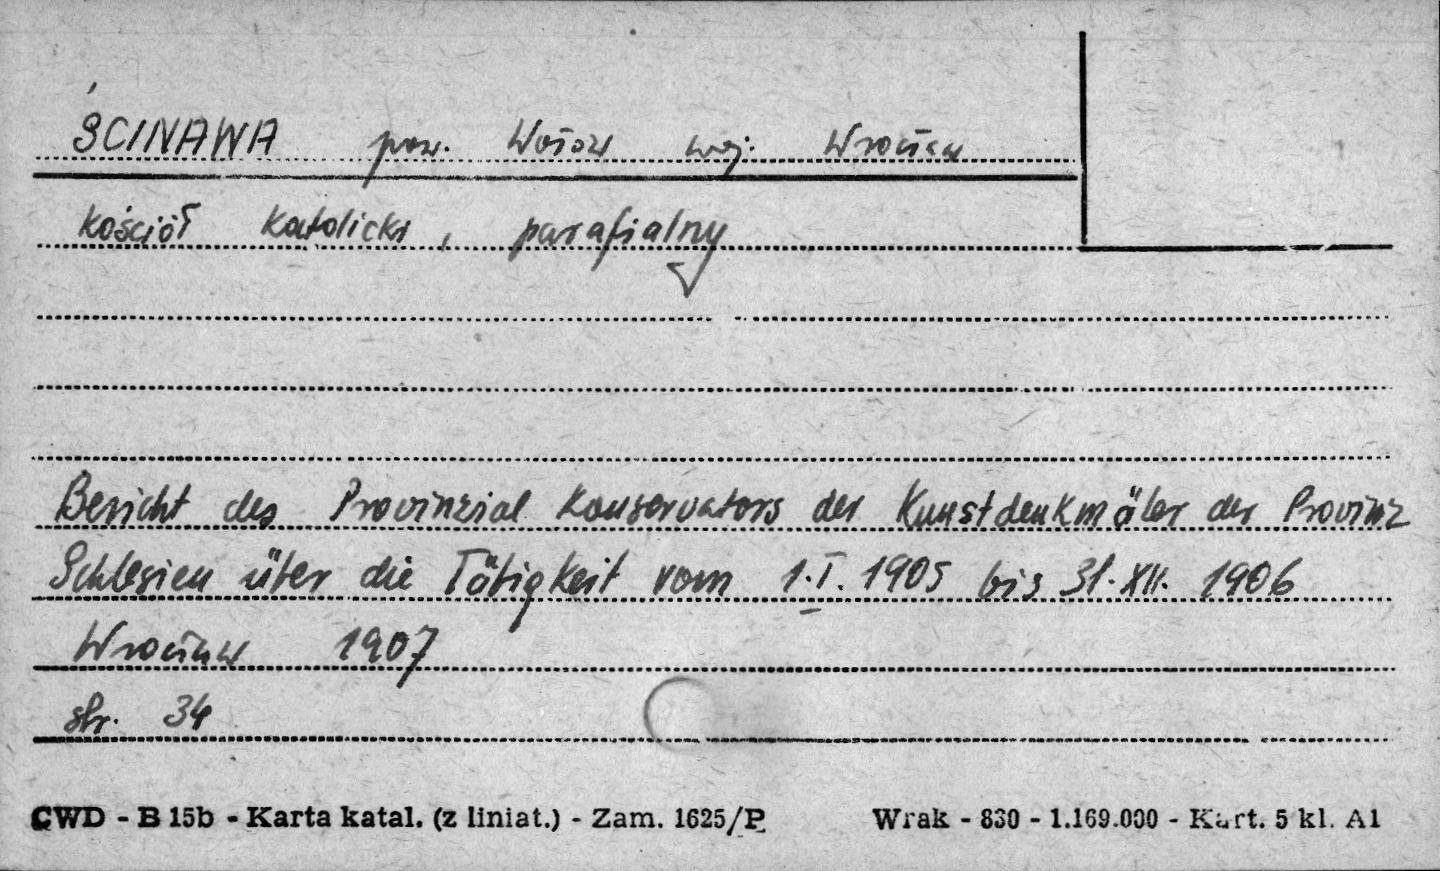 ŚCINAWA pow. Wołów woj. Wrocław
kościół katolicki, parafialny
Bericht des Provinzial Konservators der Kunstdenkmäler der Provinz
Schlesien über die Tätigkeit vom 1.I. 1905 bis 31.XII. 1906
Wrocław 1907
str. 34
CWD - B 15b - Karta katal. (z liniat.) - Zam. 1625/P Wrak - 830 - 1.169.000 - Kart. 5 kl. A1